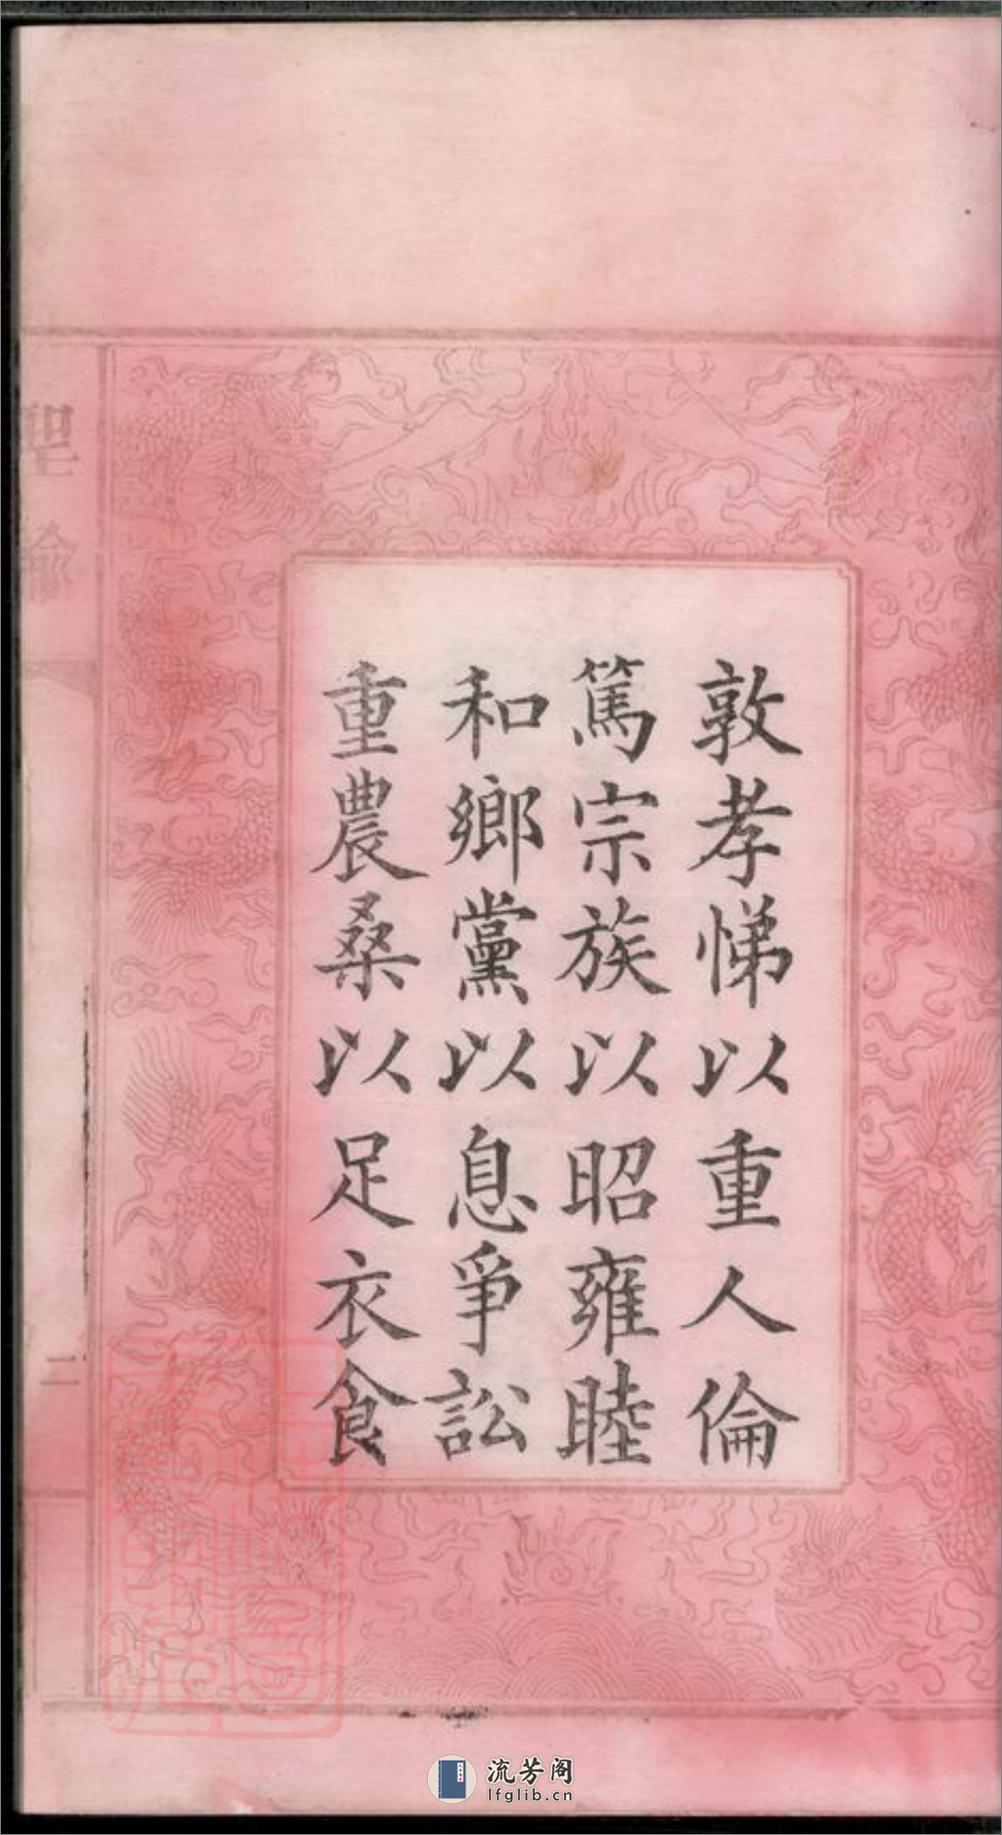 敦孝悌以重人倫
篤宗族以昭雍睦
和鄉黨以息爭訟
重農桑以足衣食
聖諭
二
流芳阁
lfglib.cn